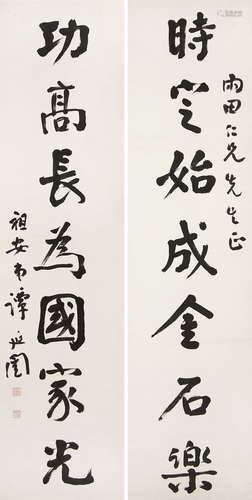 雨田仁兄先生正
時定始成金石樂
功高長為國家光
祖安弟譚延闓